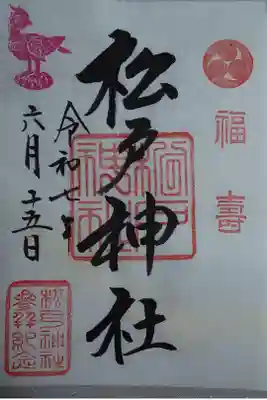 福壽
松戸神社
令和七年
六月十五日
松戸神社
松戸神社
参拝紀念